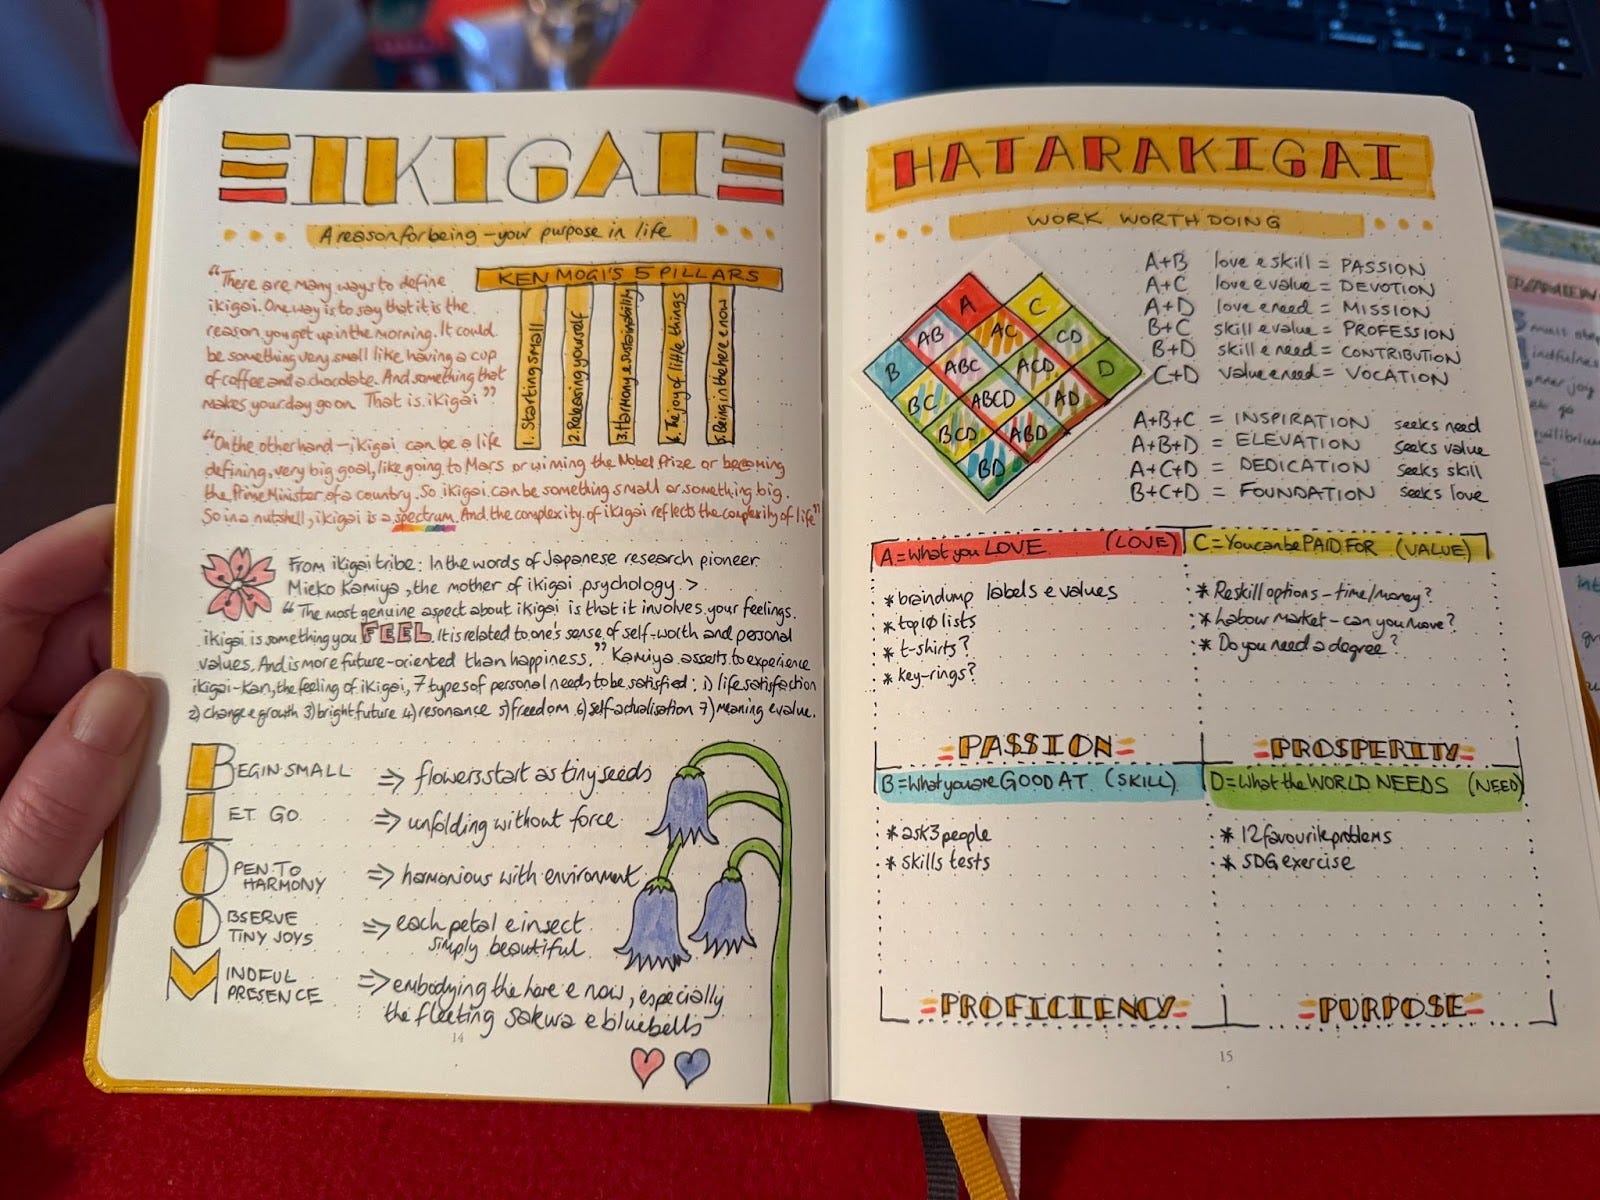 IKIGAI
A reason for being – your purpose in life
"There are many ways to define
ikigai. One way is to say that it is the
reason you get up in the morning. It could
be something very small like having a cup
of coffee and a chocolate. And something that
makes your day go on. That is ikigai"
KEN MOGI'S 5 PILLARS
1. Starting small
2. Releasing yourself
3. Harmony & sustainability
4. The joy of little things
5. Being in the here & now
"On the other hand – ikigai can be a life
defining, very big goal, like going to Mars or winning the Nobel Prize or becoming
the Prime Minister of a country. So ikigai can be something small or something big.
So in a nutshell, ikigai is a spectrum. And the complexity of ikigai reflects the complexity of life"
From ikigai tribe: In the words of Japanese research pioneer
Mieko Kamiya, the mother of ikigai psychology >
"The most genuine aspect about ikigai is that it involves your feelings.
ikigai is something you FEEL. It is related to one's sense of self-worth and personal
values. And is more future-oriented than happiness." Kamiya asserts to experience
ikigai-kan, the feeling of ikigai, 7 types of personal needs to be satisfied: 1) life satisfaction
2) change & growth 3) bright future 4) resonance 5) freedom 6) self-actualisation 7) meaning & value.
BEGIN SMALL ⇒ flowers start as tiny seeds
LET GO ⇒ unfolding without force
OPEN TO
HARMONY ⇒ harmonious with environment
OBSERVE
TINY JOYS ⇒ each petal & insect
simply beautiful
MINDFUL
PRESENCE ⇒ embodying the here & now, especially
the fleeting sakura & bluebells
14
HATARAKIGAI
WORK WORTH DOING
A
C
AB
AC
CD
B
ABC
ACD
D
BC
ABCD
AD
BCD
ABD
BD
A+B love & skill = PASSION
A+C love & value = DEVOTION
A+D love & need = MISSION
B+C skill & value = PROFESSION
B+D skill & need = CONTRIBUTION
C+D value & need = VOCATION
A+B+C = INSPIRATION seeks need
A+B+D = ELEVATION seeks value
A+C+D = DEDICATION seeks skill
B+C+D = FOUNDATION seeks love
A = What you LOVE (LOVE)
* braindump labels & values
* top 10 lists
* t-shirts?
* key-rings?
PASSION
C = You can be PAID FOR (VALUE)
* Reskill options – time/money?
* Labour market – can you move?
* Do you need a degree?
PROSPERITY
B = What you are GOOD AT (SKILL)
* ask 3 people
* skills tests
PROFICIENCY
D = What the WORLD NEEDS (NEED)
* 12 favourite problems
* SDG exercise
PURPOSE
15